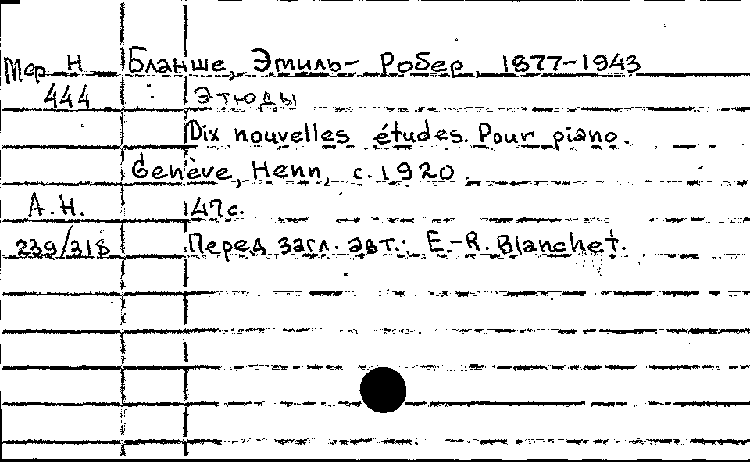 Мер Н Бланше, Эмиль-Робер, 1877-1943
444 Этюды
Dix nouvelles études. Pour piano.
Genève, Henn, c. 1920.
А.Н. 147с.
239/318 Перед загл. авт.: E.-R. Blanchet.